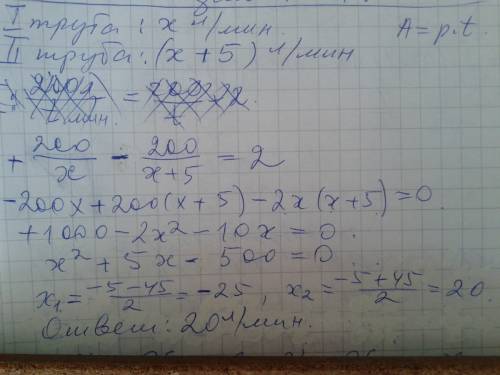 I труба: x л/мин. A = p.t
II труба: (x + 5) л/мин
+ 200/x - 200/(x+5) = 2
-200x + 200(x + 5) - 2x(x+5) = 0
+1000 - 2x² - 10x = 0
x² + 5x - 500 = 0
x₁ = (-5-45)/2 = -25, x₂ = (-5+45)/2 = 20
Ответ: 20 л/мин.